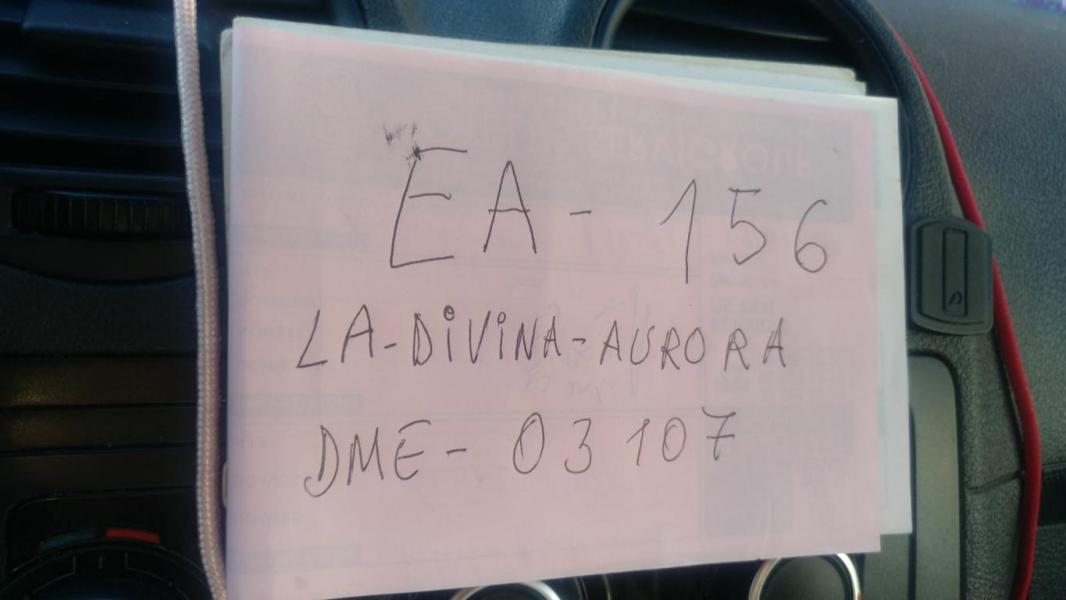 EA - 156
LA-DiViNA-AURORA
DME - 03107